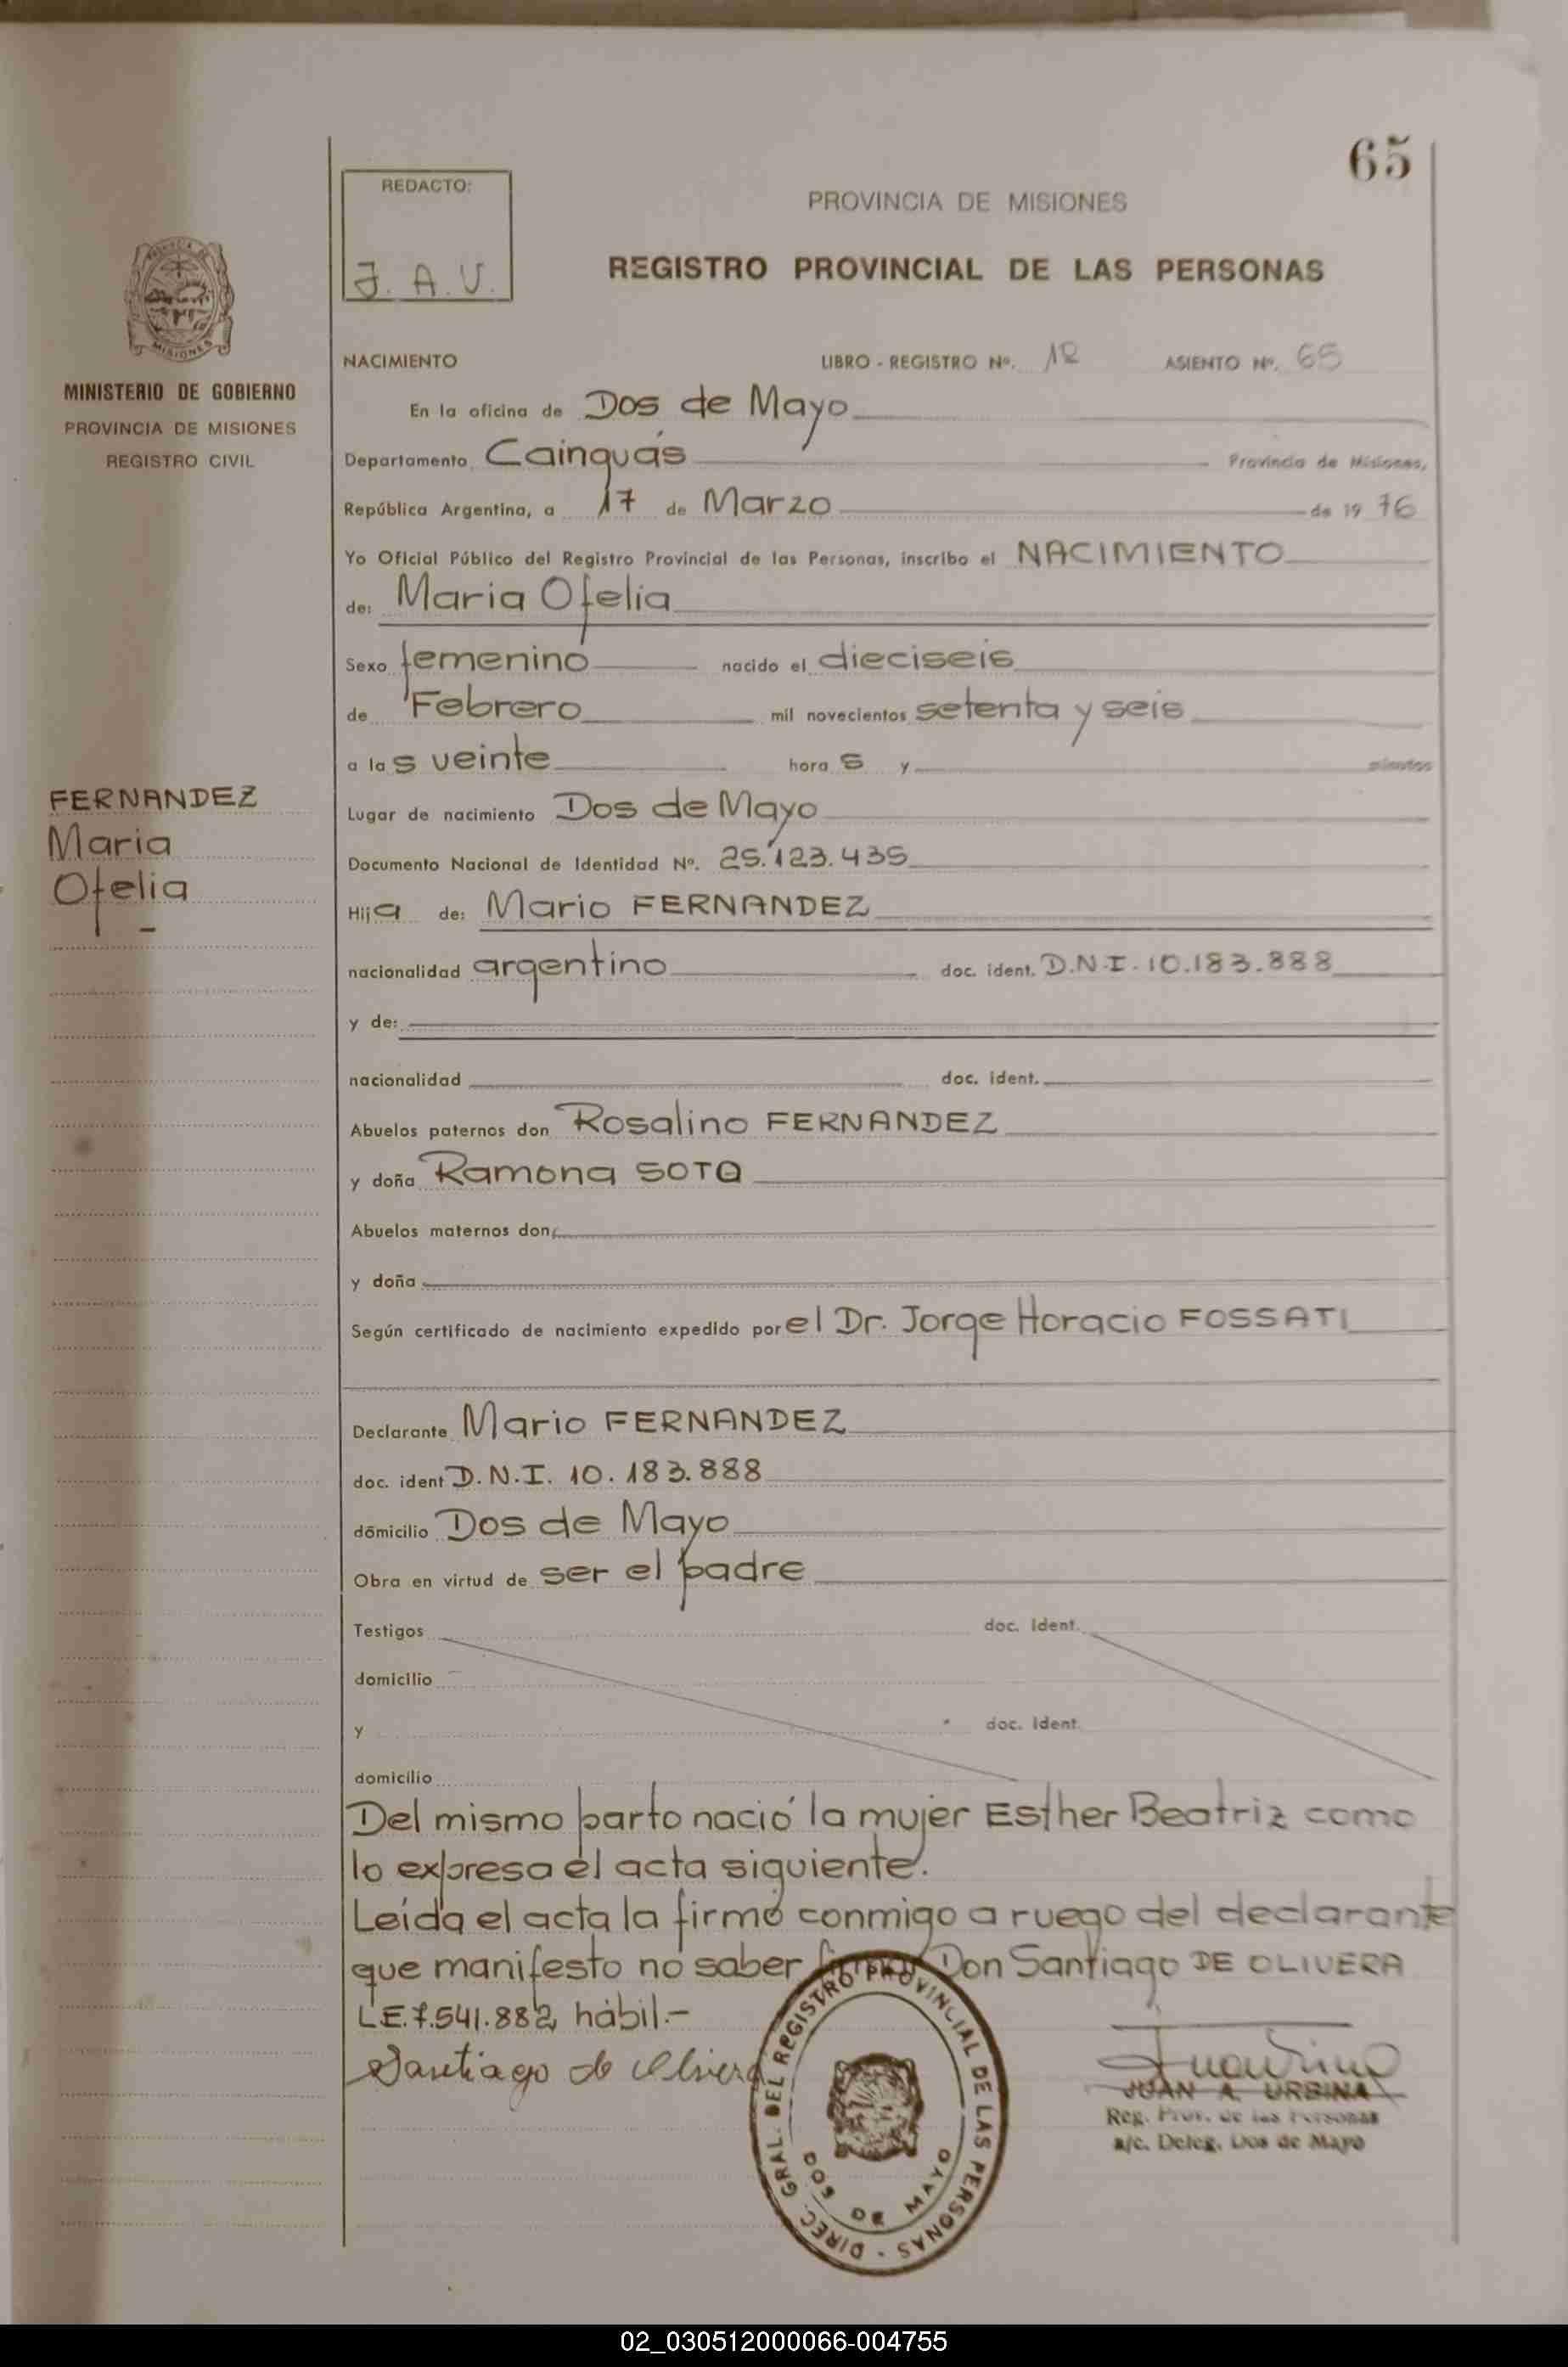 65
REDACTO:
J. A. U.
PROVINCIA DE MISIONES
REGISTRO PROVINCIAL DE LAS PERSONAS
MISIONES
MINISTERIO DE GOBIERNO
PROVINCIA DE MISIONES
REGISTRO CIVIL
NACIMIENTO LIBRO - REGISTRO Nº. 12 ASIENTO Nº. 65
En la oficina de Dos de Mayo
Departamento Cainguás Provincia de Misiones,
República Argentina, a 17 de Marzo de 19 76
Yo Oficial Público del Registro Provincial de las Personas, inscribo el NACIMIENTO
de: Maria Ofelia
Sexo femenino nacido el dieciseis
de Febrero mil novecientos setenta y seis
a las veinte hora s y minutos
FERNANDEZ
Maria
Ofelia
Lugar de nacimiento Dos de Mayo
Documento Nacional de Identidad Nº. 25.123.435
Hija de: Mario FERNANDEZ
nacionalidad argentino doc. ident. D.N.I. 10.183.888
y de:
nacionalidad doc. ident.
Abuelos paternos don Rosalino FERNANDEZ
y doña Ramona SOTO
Abuelos maternos don
y doña
Según certificado de nacimiento expedido por el Dr. Jorge Horacio FOSSATI
Declarante Mario FERNANDEZ
doc. ident D.N.I. 10.183.888
domicilio Dos de Mayo
Obra en virtud de ser el padre
Testigos doc. ident.
domicilio
y doc. ident.
domicilio
Del mismo parto nació la mujer Esther Beatriz como
lo expresa el acta siguiente.
Leída el acta la firmó conmigo a ruego del declarante
que manifesto no saber firmar Don Santiago DE OLIVERA
L.E. 7.541.882, hábil.-
Santiago de Olivera
DIREC. GRAL. DEL REGISTRO PROVINCIAL DE LAS PERSONAS -
DOS DE MAYO
JUAN A. URBINA
Reg. Prov. de las Personas
a/c. Deleg. Dos de Mayo
02_030512000066-004755